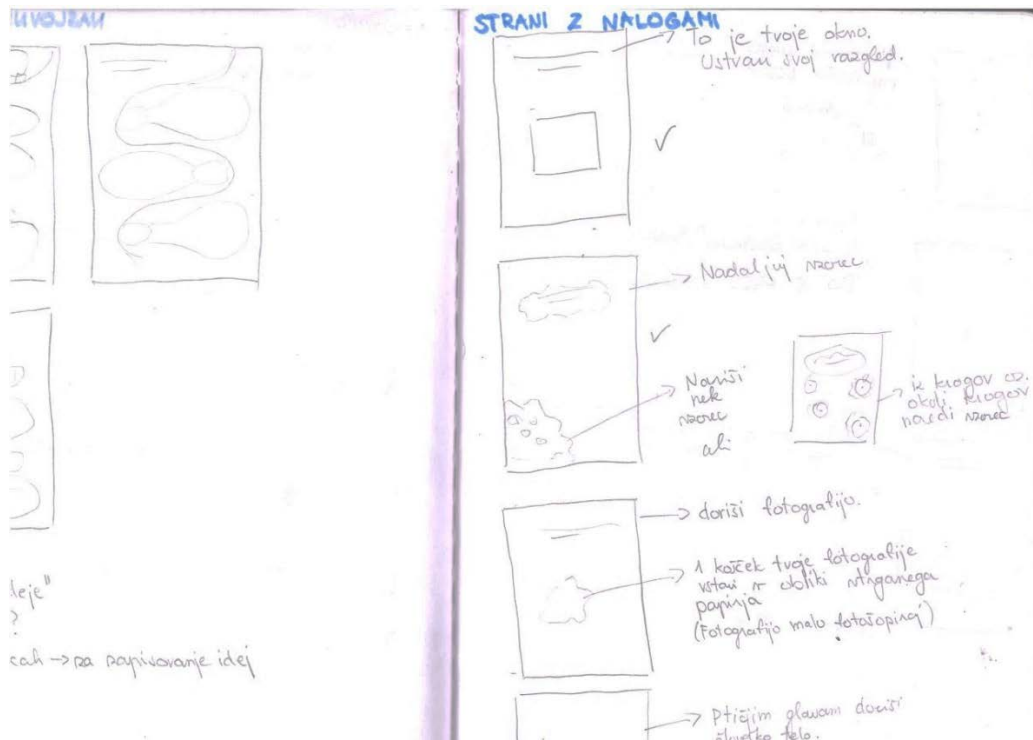 STRANI Z NALOGAMI
To je tvoje okno.
Ustvari svoj razgled.
Nadaljuj vzorec
Nariši
nek
vzorec
ali
iz krogov oz.
okoli krogov
naredi vzorec
doriši fotografijo.
1 košček tvoje fotografije
vstavi v obliki strganega
papirja
(Fotografijo malo fotošopiraj)
Ptičjim glavam doriši
človeško telo.
ideje"
?
→ za zapisovanje idej